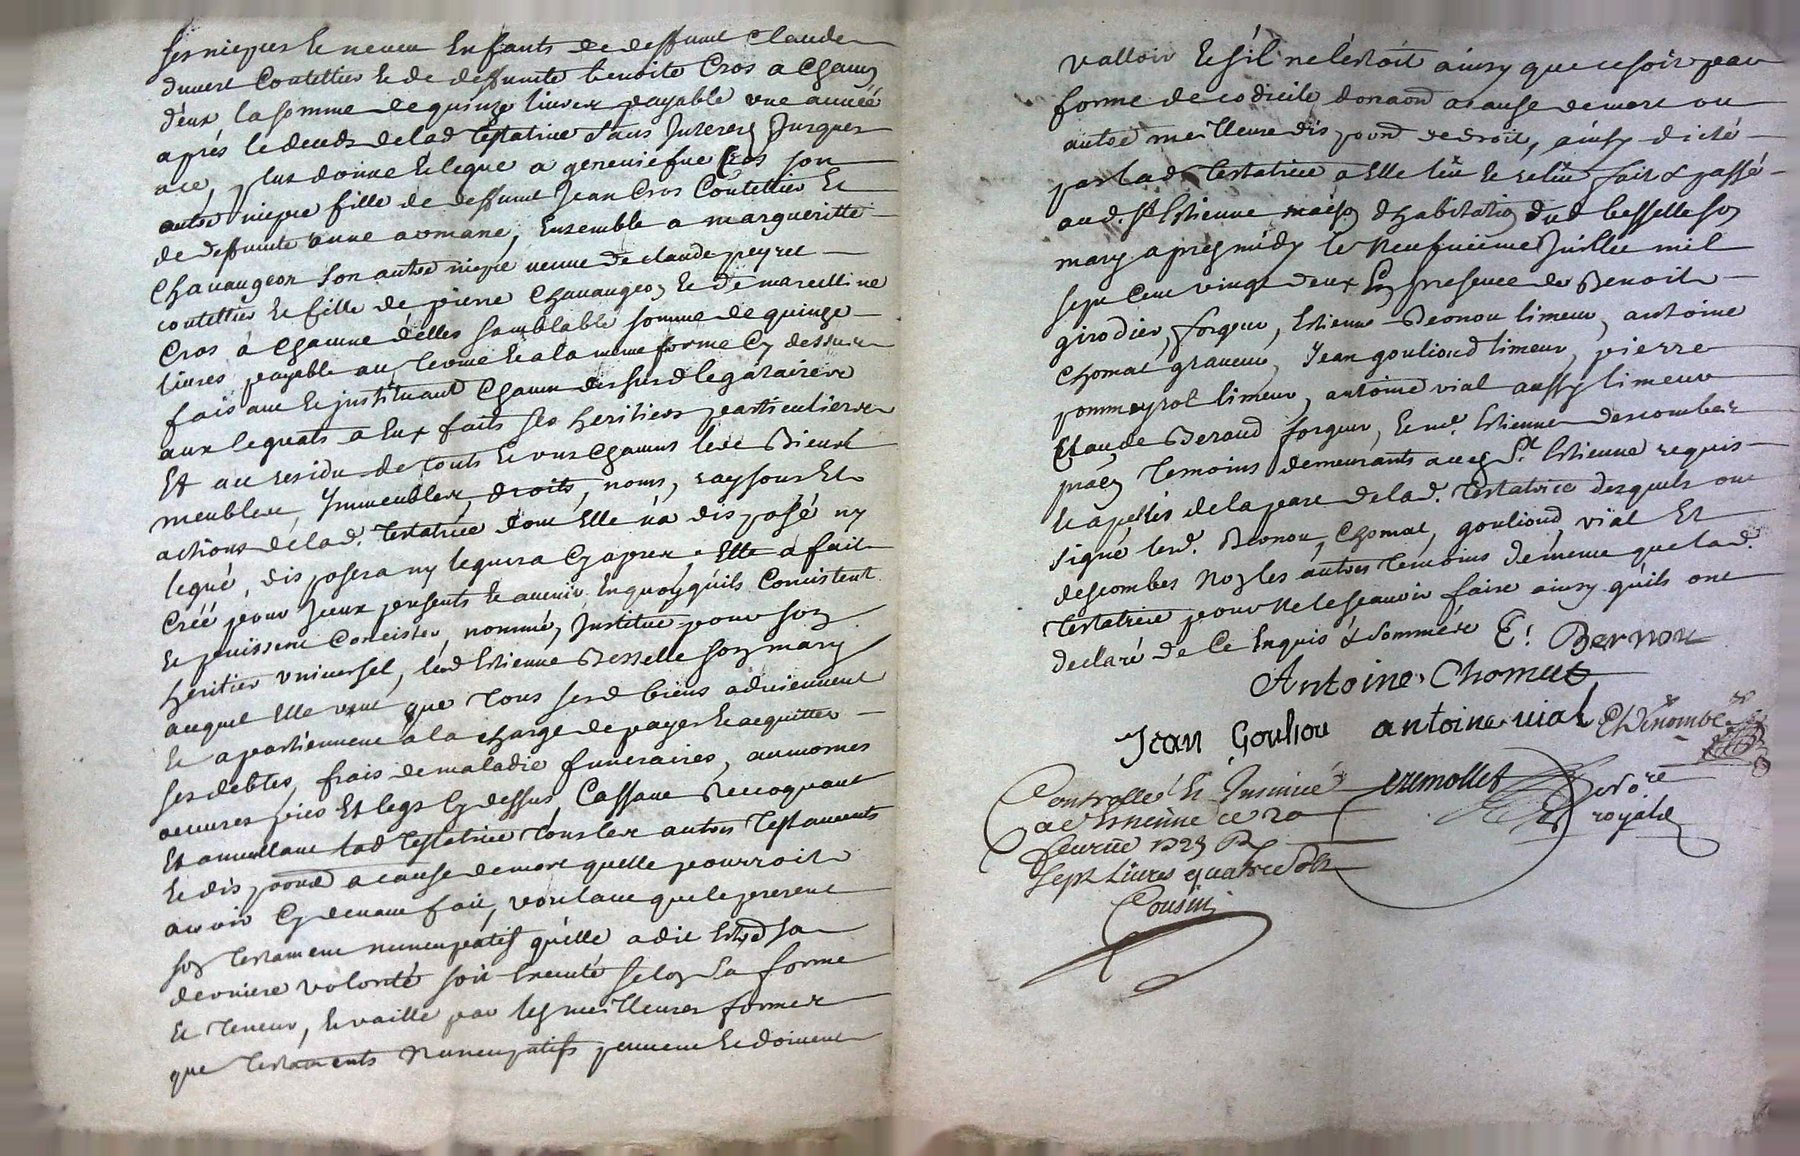 ses niepces et neveu Enfants de deffunt Claude
duvert Coutellier et de deffunte benoite Cros a Chacun
d'eux la somme de quinze livres payable une année
aprés le deceds de lad testatrice sans Interest Jusques
a ce, plus donne et legue a geneviefve Cros son
autre niepce fille de deffunt Jean Cros Coutellier et
de deffunte anne armane, Ensemble a margueritte
Chavangeon son autre niepce veuve de claude peyret
coutellier et fille de pierre Chavangeon et de marcelline
Cros a chacune d'elles samblable somme de quinze
livres payable au terme et a la meme forme Cy dessus
fais ant et justituant Chacun desdusd legataires
aux legats a Eux faits ses heritiers particulliers
Et au residu de touts et uns chacuns sesd Biens
meubles Immeubles, droits, noms, raysons Et
actions de lad. testatrice dont Elle n'a disposé ny
legué, disposera ny leguera Cy apres, Elle a fait
Créé pour Iceux presents et avenir En quoy quils Concistent
et puissent Concister, nommé, Justitué pour son
heritier universel, led Estienne Besselle son mary
auquel Elle veut que tous sesd biens adviennent
et apartiennent a la charge de payer et acquitter
ses debtes, frais de maladie funeraires, aumones
oeuvres pies Et legs Cy dessus, Cassant Revoquant
Et annullant lad testatrice tous les autres testaments
et dispoond a cause de mort quelle pourroit
avoir Cy devant fait, voulant que le present
son testament nuncupatif qu'elle a dit Estre sa
derniere volonté soit Executé selon sa forme
et teneur, et vaille par les meilleures formes
que testaments Nuncupatifs peuvent et doivent
valloir et s'il ne l'estoit ainsy que ce soit par
forme de codicile donaond a cause de mort ou
autre meilleure dispoond de droit, ainsy dicté
par lad testatrice a Elle lû et relû fait & passé
aud. St Estienne maison d'habitation dud besselle son
mary apres midy le Neufvieme Juillet mil
sept Cent vingt deux En presence de Benoit
girodier, forgeur, Estienne Bernou limeur, antoine
Chomat graveur, Jean gouliond limeur, pierre
pommeyrol limeur, antoine vial aussy limeur
Claude Beraud forgeur, et me. Estienne descombes
praen temoins demeurants aud St. Estienne requis
et apellés de la part de lad. testatrice desquels ont
signé lesd. Bernou, Chomat, gouliond, vial Et
descombes Non les autres temoins de meme que lad.
testatrice pour Ne le scavoir faire ainsy qu'ils ont
declaré de Ce Enquis & sommés E! Bernou
Antoine Chomat
Jean Gouliou antoine vial
Controllé Et Insinué tremollet
a St Estienne ce 20
Sept Livres quatre sols
Cousin
royal